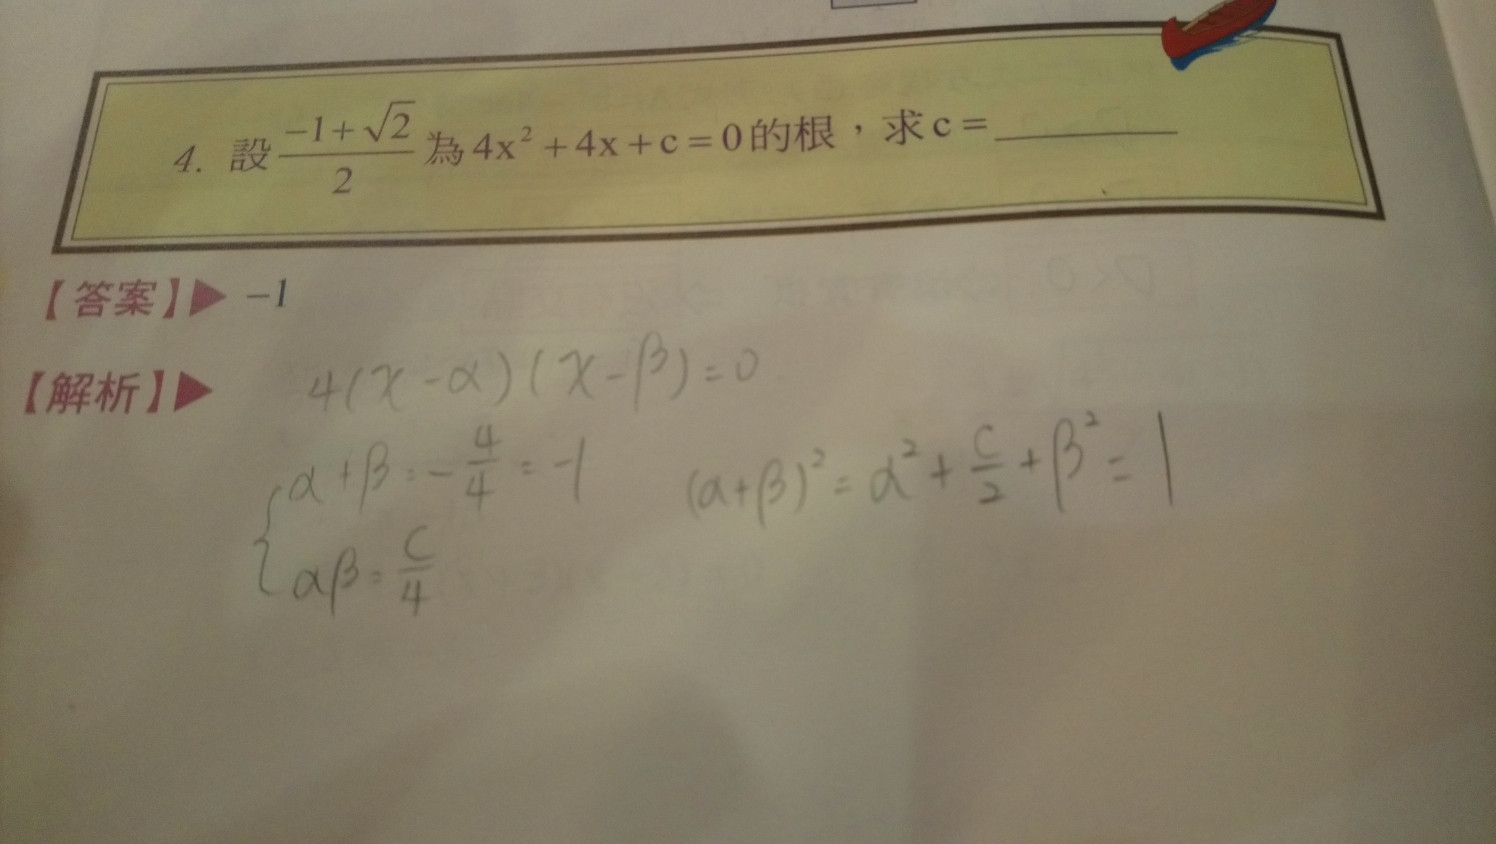 4. 設 \frac{-1+\sqrt{2}}{2} 為 4x² + 4x + c = 0 的根，求 c = ______
【答案】▶ −1
【解析】▶ 4(x-α)(x-β)=0
α+β = -\frac{4}{4} = -1
(α+β)² = α² + \frac{c}{2} + β² = 1
αβ = \frac{c}{4}